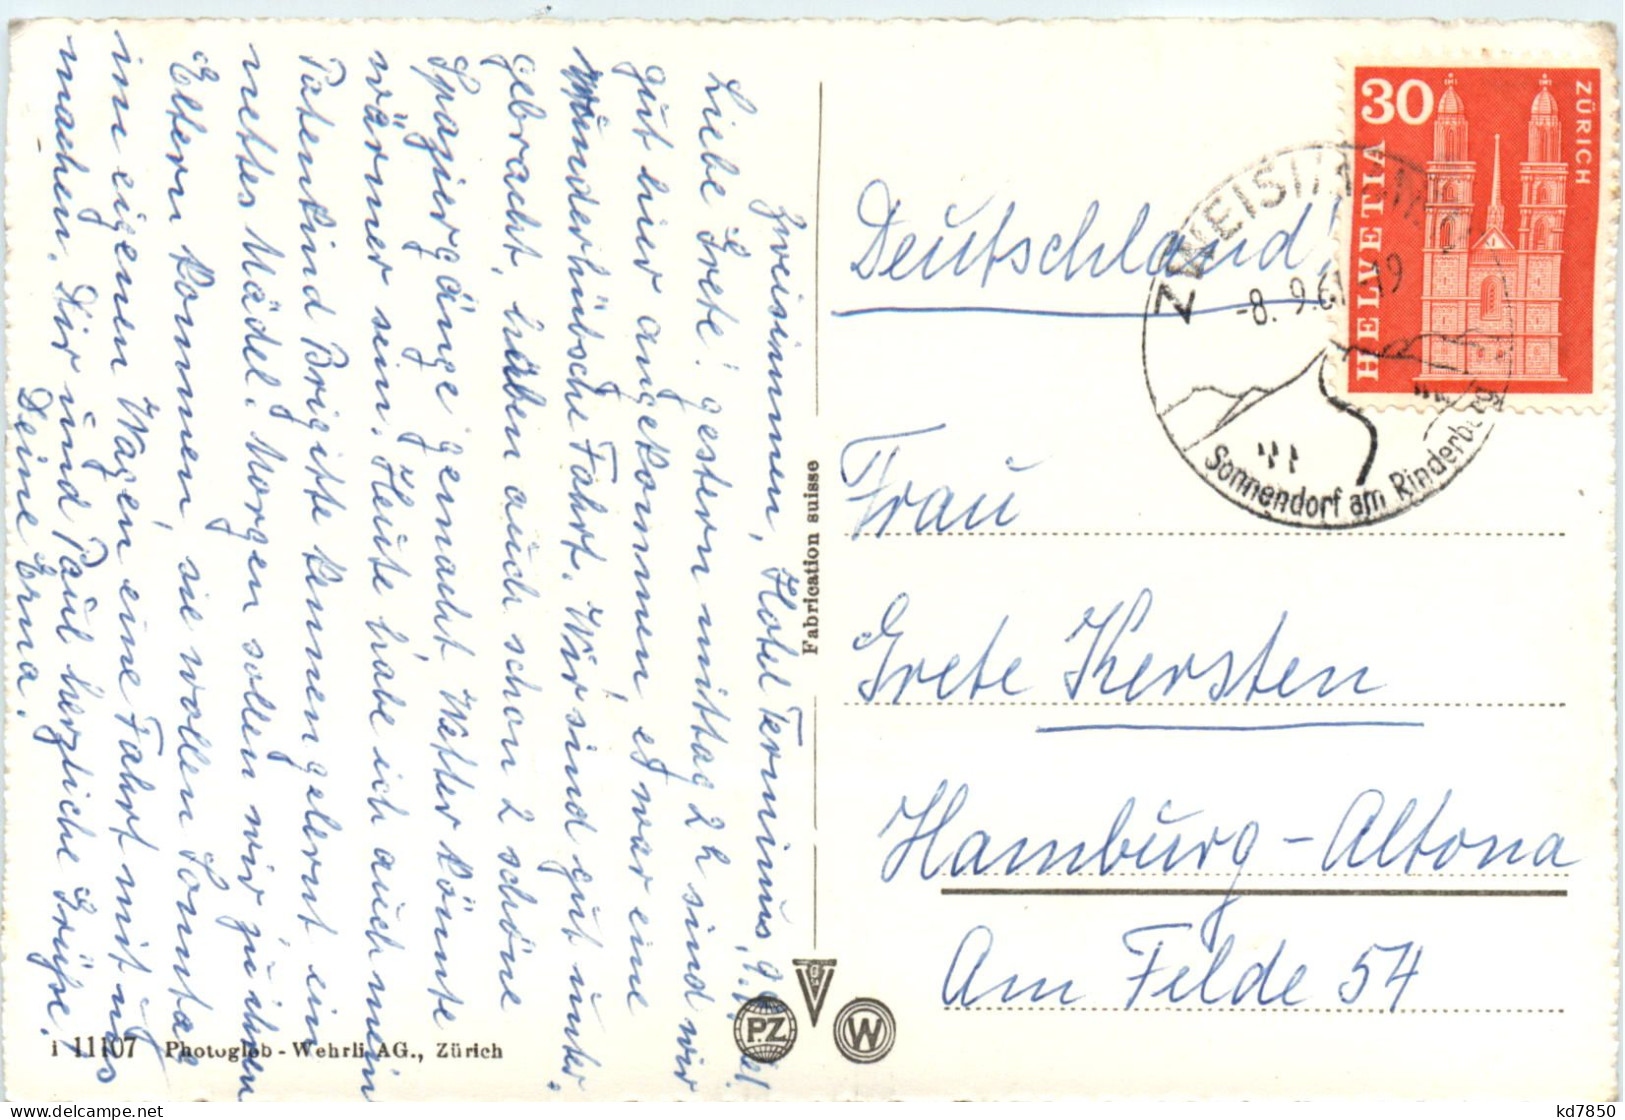 Zweisimmen, Hotel Terminus,
Liebe Grete! gestern mittag 2 h sind wir
gut hier angekommen es war eine
wunderhübsche Fahrt. Wir sind gut unter-
gebracht, haben auch schon 2 schöne
Spaziergänge gemacht Wetter könnte
wärmer sein. Heute habe ich auch mein
Patenkind Brigitte kennengelernt ein
nettes Mädel. Morgen sollen wir zu ihren
Eltern kommen, sie wollen Sonntag
im eigenen Wagen eine Fahrt mit uns
machen. Dir und Paul herzliche Grüße.
Deine Erna.
i 11107 Photoglob-Wehrli AG., Zürich
Fabrication suisse
P.Z
W
30
ZÜRICH
HELVETIA
-8. 9.61-19
Sonnendorf am Rinderberg
Deutschland!
Frau
Grete Kersten
Hamburg-Altona
Am Felde 54
kd7850